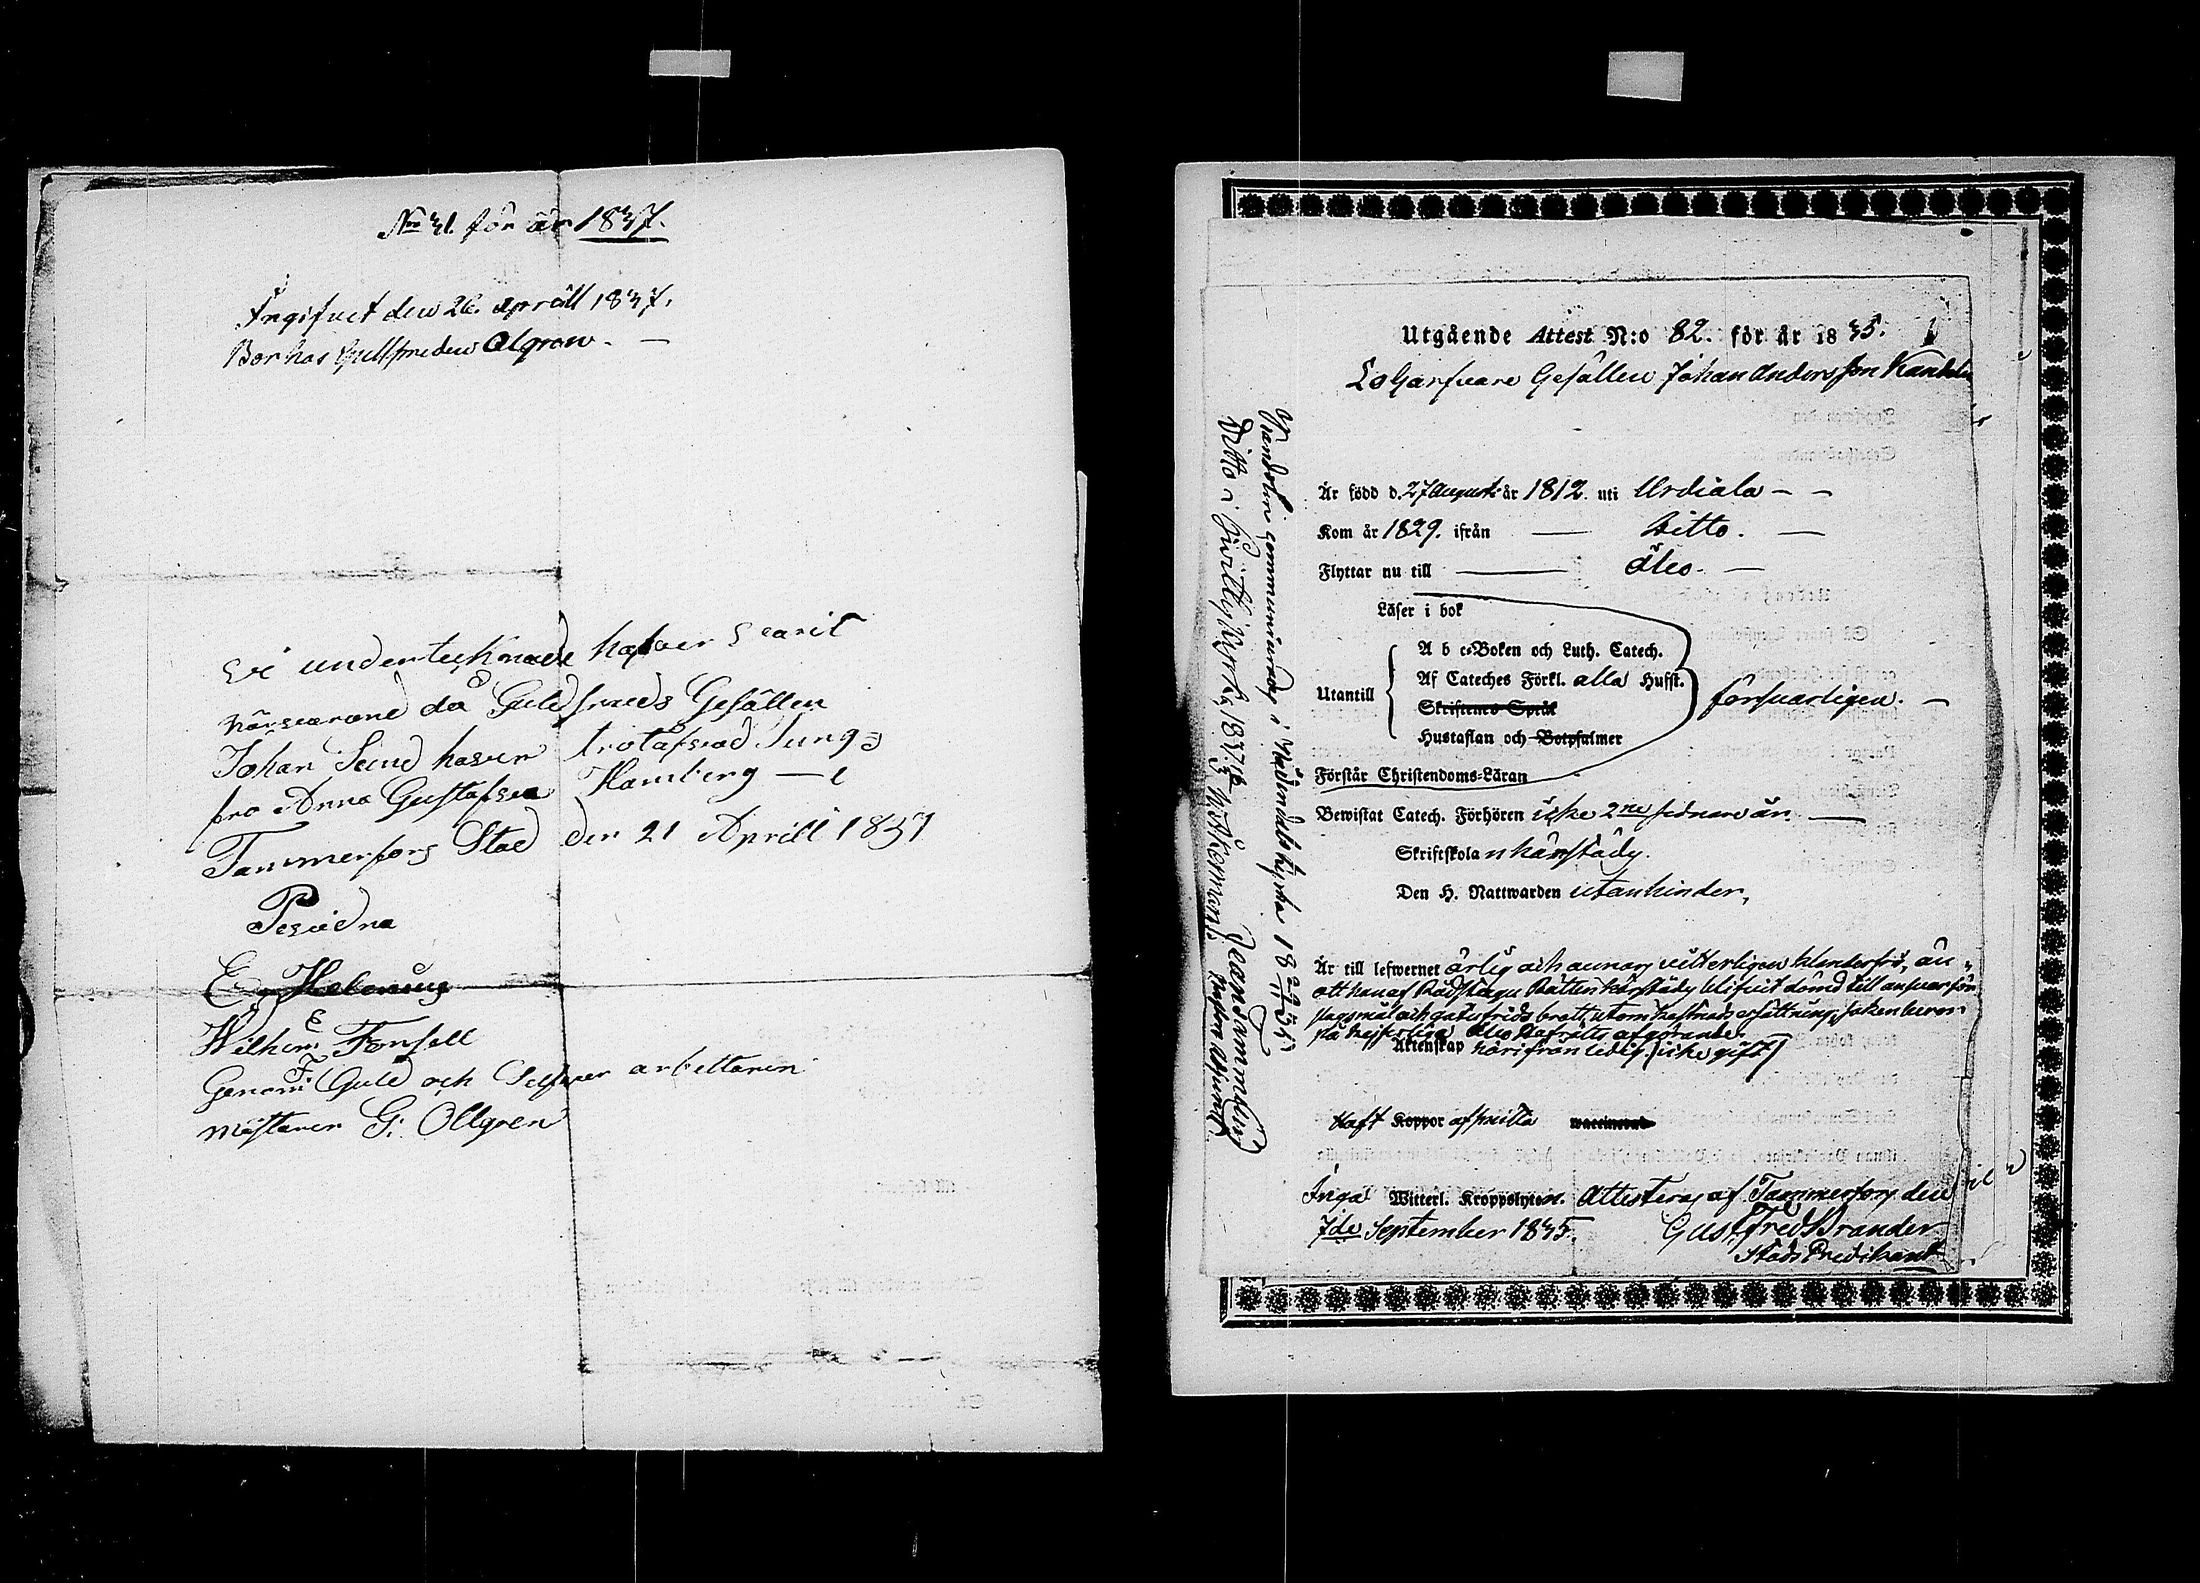 No 31. för år 1837.
Ingifvet den 26. aprill 1837.
Bor hos Gullsmeden Olgren. —
Vi undertecknade hafver varit
närvarand då Guldsmeds Gesällen
Johan Lund haver trolåfvad Jung
fro Anna Gustafva Hamberg —
Tammerfors Stad den 21 Aprill 1837
E. Helenius
Wilhem Forsell
Genom Guld och Selfver arbettaren
mästaren G: Ollgren
Utgående Attest N:o 82. för år 1835.
Logarfvare Gesällen Johan Andersson Kandolin
Är född d. 27 Augusti år 1812. uti Urdiala – –
Kom år 1829. ifrån — Ditto. —
Flyttar nu till — Åbo. —
Läser i bok
A b c-Boken och Luth. Catech.
Utantill Af Cateches Förkl. alla Hufst. försvarligen. —
Skriftenes Språk
Hustaflan och Botpsalmer
Förstår Christendoms-Läran
Bewistat Catech. Förhören icke 2ne sednare år. —
Skriftskola härstädes.
Den H. Nattwarden utan hinder,
Är till lefwernet ärlig och annars vitterligen klanderfri, än
att han af Rådstugu Rätten härstädes blifvit dömd till ansvar för
slagsmål och gatufrids brott, utom kostnads ersättning, saken beror
på Kejserliga Åbo Hofrätts afgörande.
Äktenskap härifrån ledig (icke gift)
Haft Koppor vaccinerad
Inga Witterl. Kroppslyten. Attesteras af Tammerfors den
7de September 1835. Gust. Fred Brander
Stads Predikant
Kandolin communicerade i Nådendals kyrka 18 29/11 35
Ditto i kyrka 1837